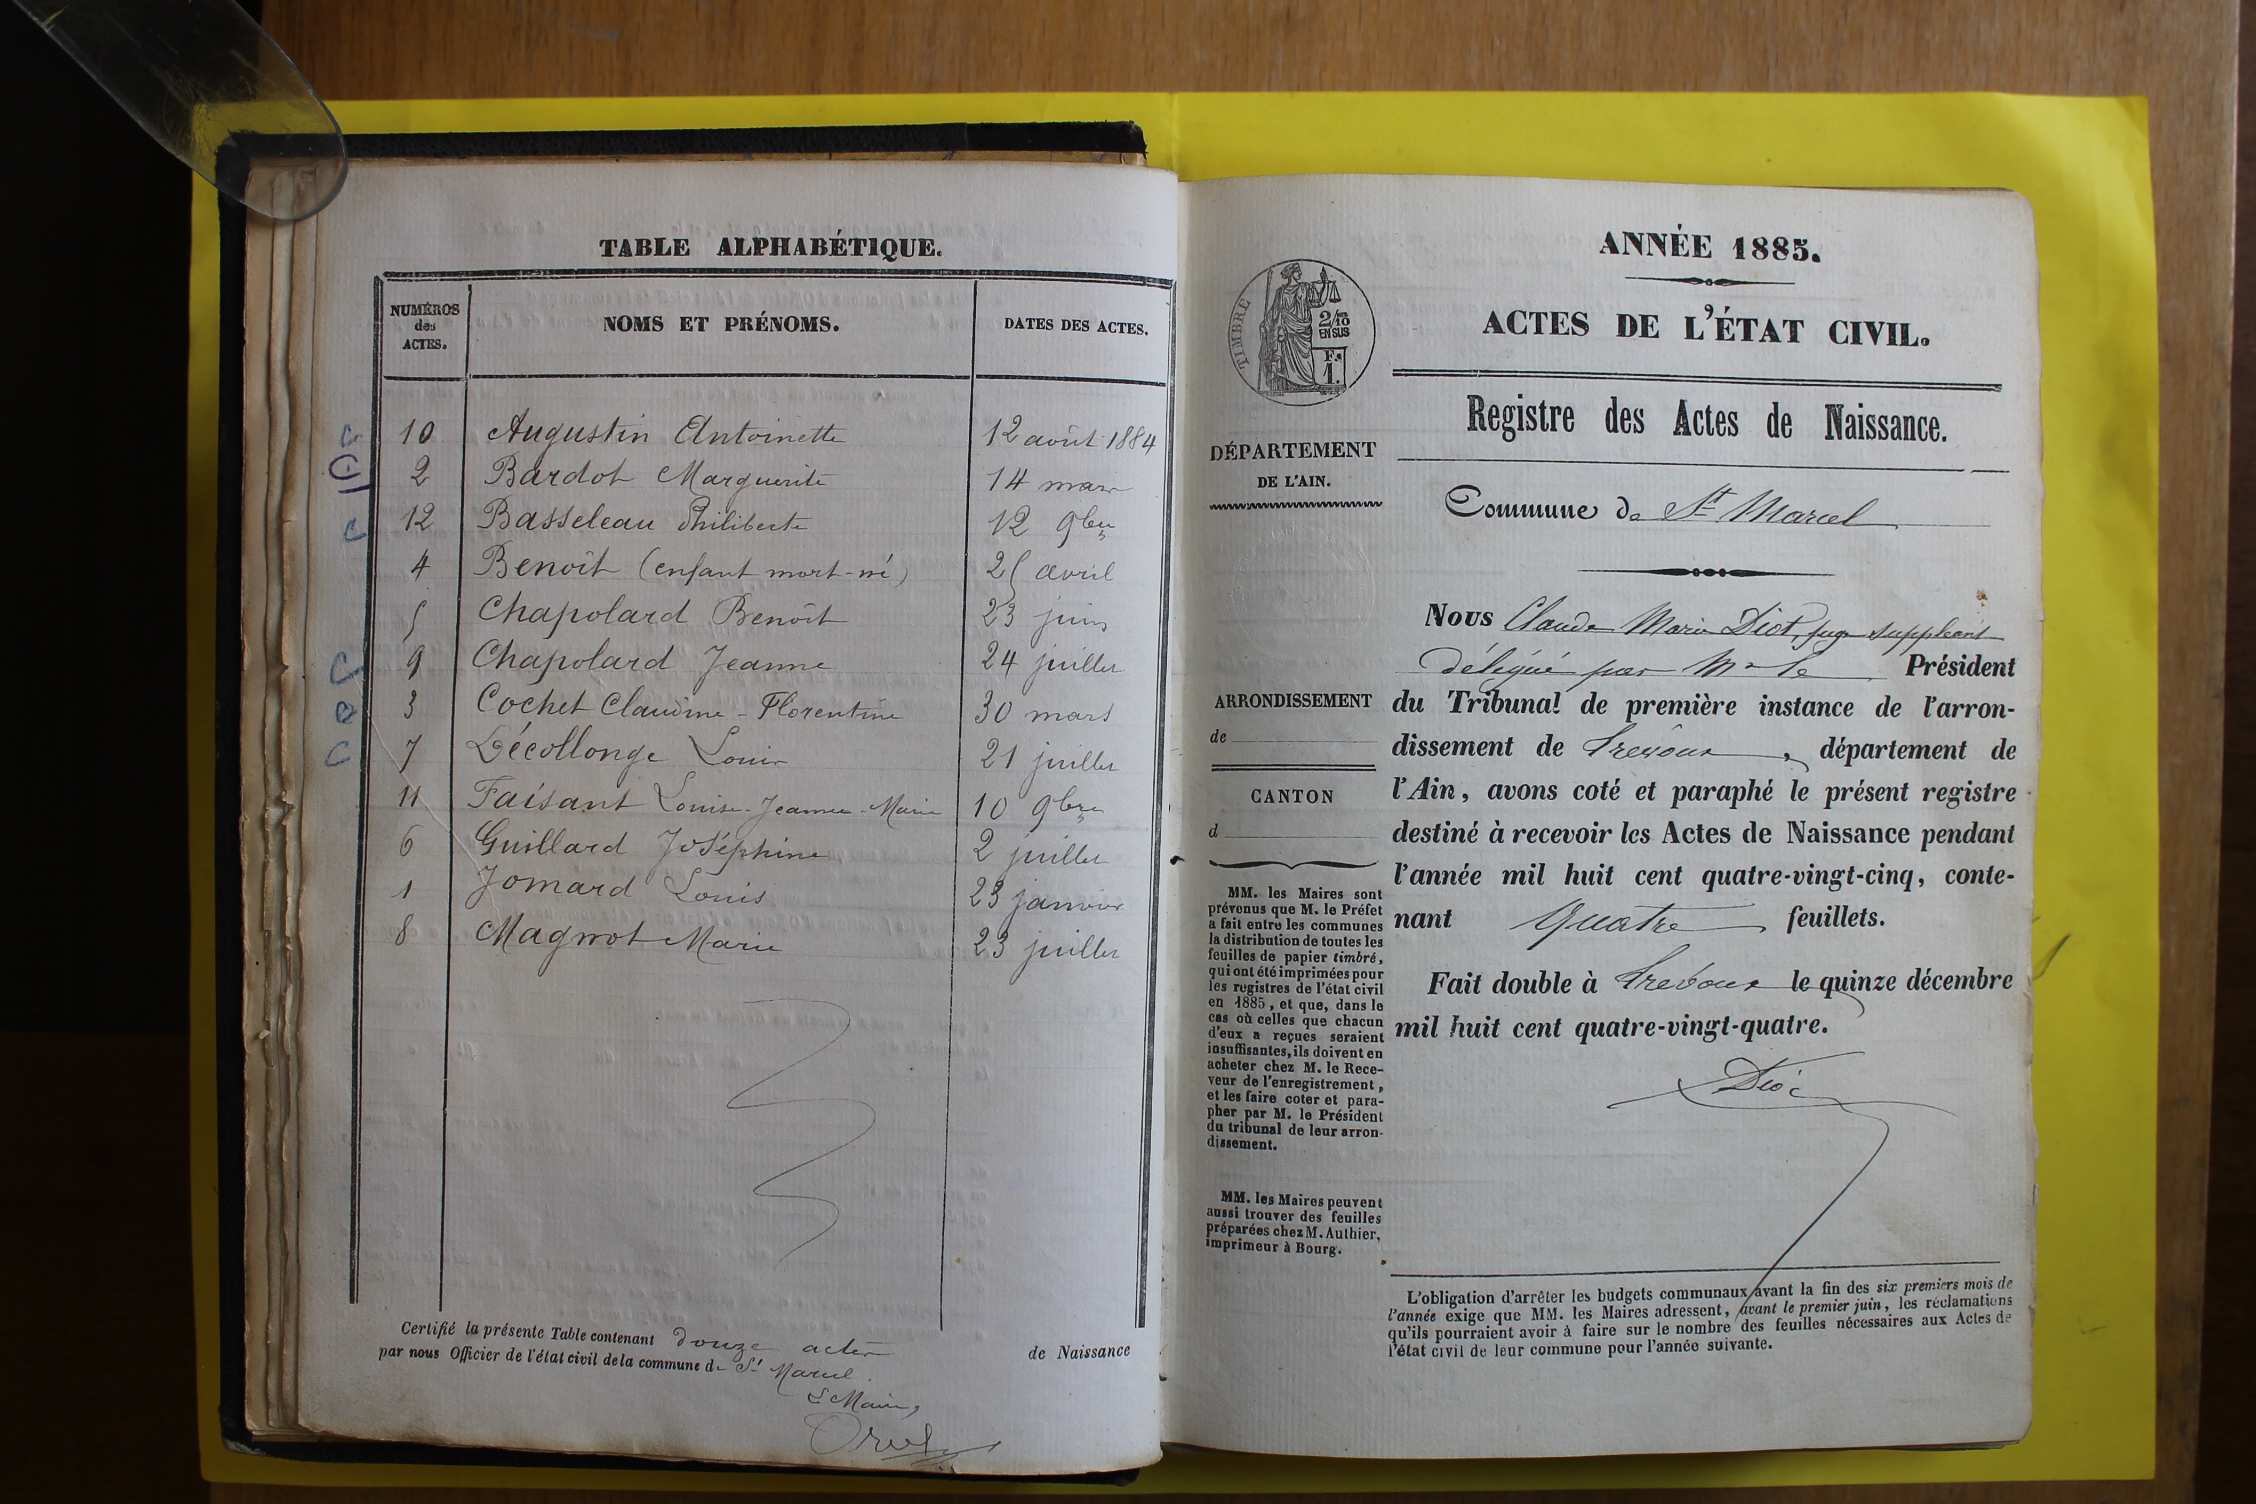 TABLE ALPHABÉTIQUE.
NUMÉROS
des
ACTES.
NOMS ET PRÉNOMS.
DATES DES ACTES.
10 Augustin Antoinette 12 août 1884
2 Bardot Marguerite 14 mars
12 Basseleau Philiberte 12 9bre
4 Benoît (enfant mort-né) 25 avril
5 Chapolard Benoît 23 juin
9 Chapolard Jeanne 24 juillet
3 Cochet Claudine-Florentine 30 mars
7 Décollonge Louis 21 juillet
11 Faisant Louise-Jeanne-Marie 10 9bre
6 Guillard Joséphine 2 juillet
1 Jomard Louis 23 janvier
8 Magnot Marie 23 juillet
Certifié la présente Table contenant douze actes de Naissance
par nous Officier de l'état civil de la commune de St Marcel.
Le Maire,
ANNÉE 1885.
ACTES DE L'ÉTAT CIVIL.
Registre des Actes de Naissance.
Commune de St Marcel
Nous Claude Marie Diot, juge suppléant
délégué par Mr le Président
du Tribunal de première instance de l'arron-
dissement de Trévoux, département de
l'Ain, avons coté et paraphé le présent registre
destiné à recevoir les Actes de Naissance pendant
l'année mil huit cent quatre-vingt-cinq, conte-
nant Quatre feuillets.
Fait double à Trévoux le quinze décembre
mil huit cent quatre-vingt-quatre.
Diot
L'obligation d'arrêter les budgets communaux avant la fin des six premiers mois de
l'année exige que MM. les Maires adressent, avant le premier juin, les réclamations
qu'ils pourraient avoir à faire sur le nombre des feuilles nécessaires aux Actes de
l'état civil de leur commune pour l'année suivante.
TIMBRE
2/10
EN SUS
F.
1.
DÉPARTEMENT
DE L'AIN.
ARRONDISSEMENT
de
CANTON
d
MM. les Maires sont
prévenus que M. le Préfet
a fait entre les communes
la distribution de toutes les
feuilles de papier timbré,
qui ont été imprimées pour
les registres de l'état civil
en 1885, et que, dans le
cas où celles que chacun
d'eux a reçues seraient
insuffisantes, ils doivent en
acheter chez M. le Rece-
veur de l'enregistrement,
et les faire coter et para-
pher par M. le Président
du tribunal de leur arron-
dissement.
MM. les Maires peuvent
aussi trouver des feuilles
préparées chez M. Authier,
imprimeur à Bourg.